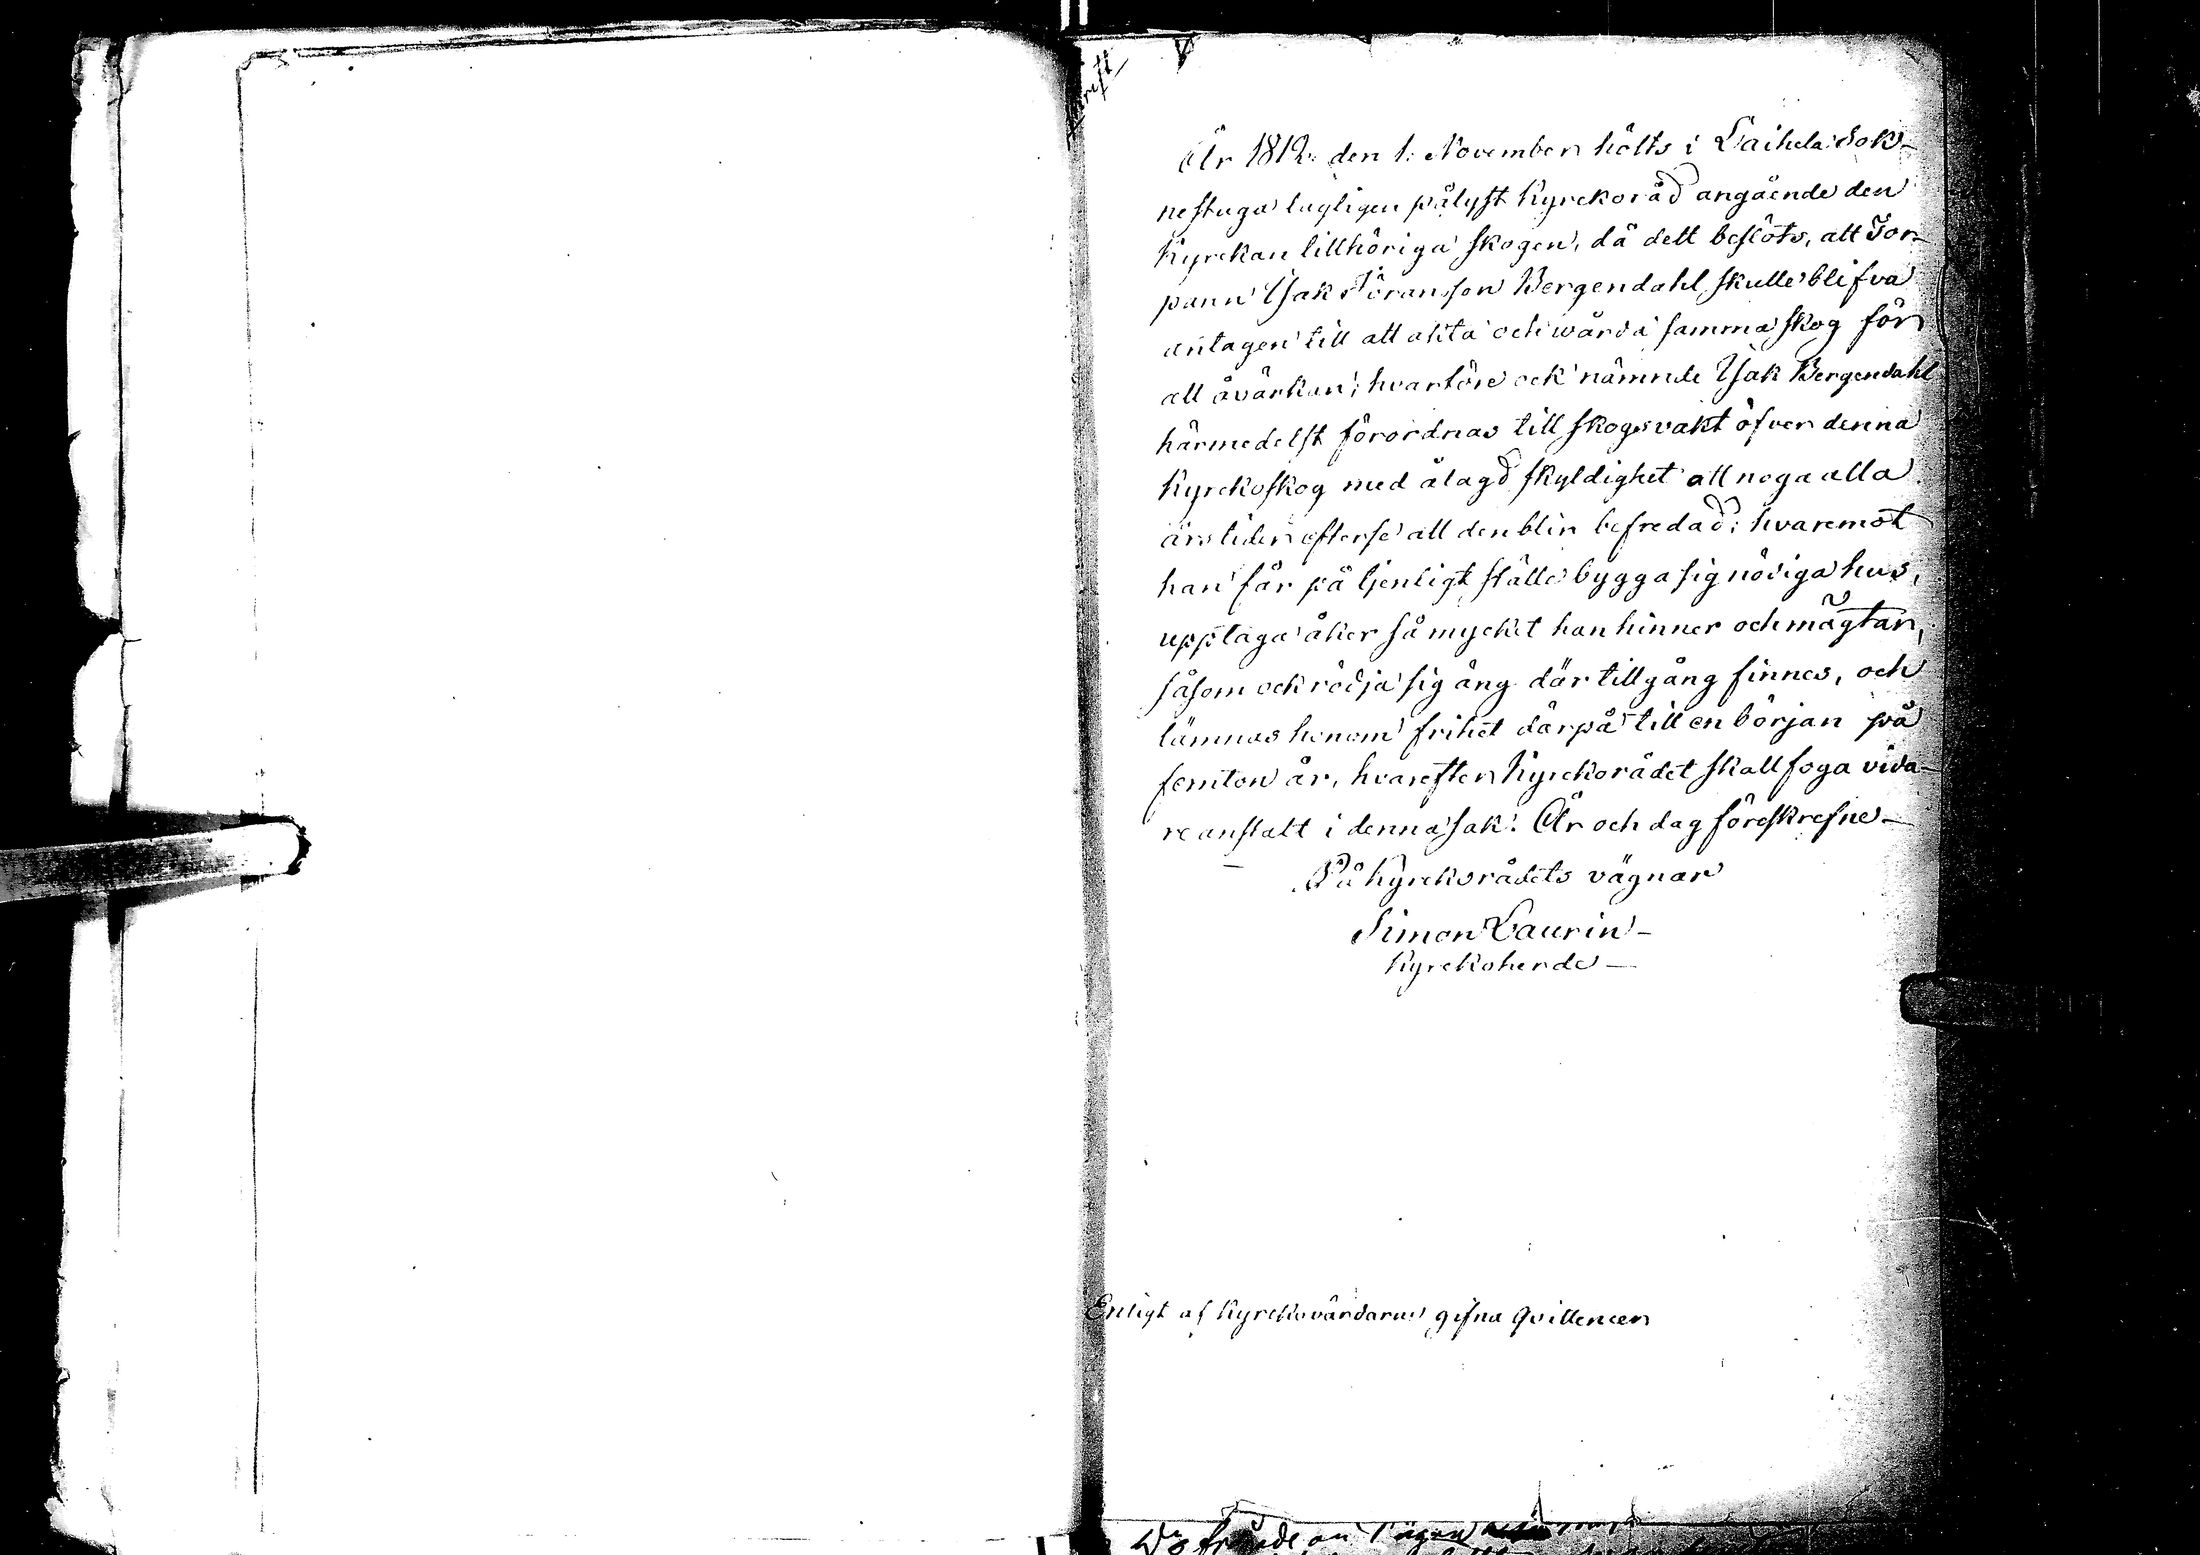 År 1812. den 1. November hölts i Laihela Sok-
nestuga lagligen pålyst Kyrckoråd angående den
Kyrckan tillhöriga skogen, då dett beslöts, att Tor-
parn Isak Göransson Bergendahl skulle blifva
antagen till att akta och wårda samma skog för
all åvärkan; hvarföre ock nämnde Isak Bergendahl
härmedelst förordnas till skogsvakt öfver denna
Kyrckoskog med ålagd skyldighet att noga alla
årstider efterse att den blir befredad; hvaremot
han får på tjenligt ställe bygga sig nödiga hus,
upptaga åker så mycket han hinner och mägtar,
såsom ock rödja sig äng där tillgång finnes, och
lämnas honom frihet därpå till en början på
femton år, hvarefter Kyrckorådet skall foga vida-
re anstalt i denna sak. År och dag föreskrefne-
På Kyrckorådets vägnar
Simon Laurin-
Kyrckoherde-
Enligt af Kyrckovärdarne gifna qvittencer